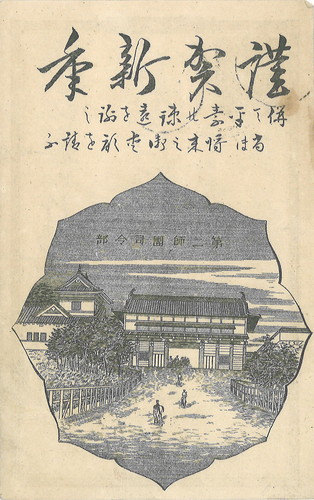 謹賀新秊
併て平素疎遠を謝し
尚ほ将来之御愛顧を請ふ
第二師團司令部